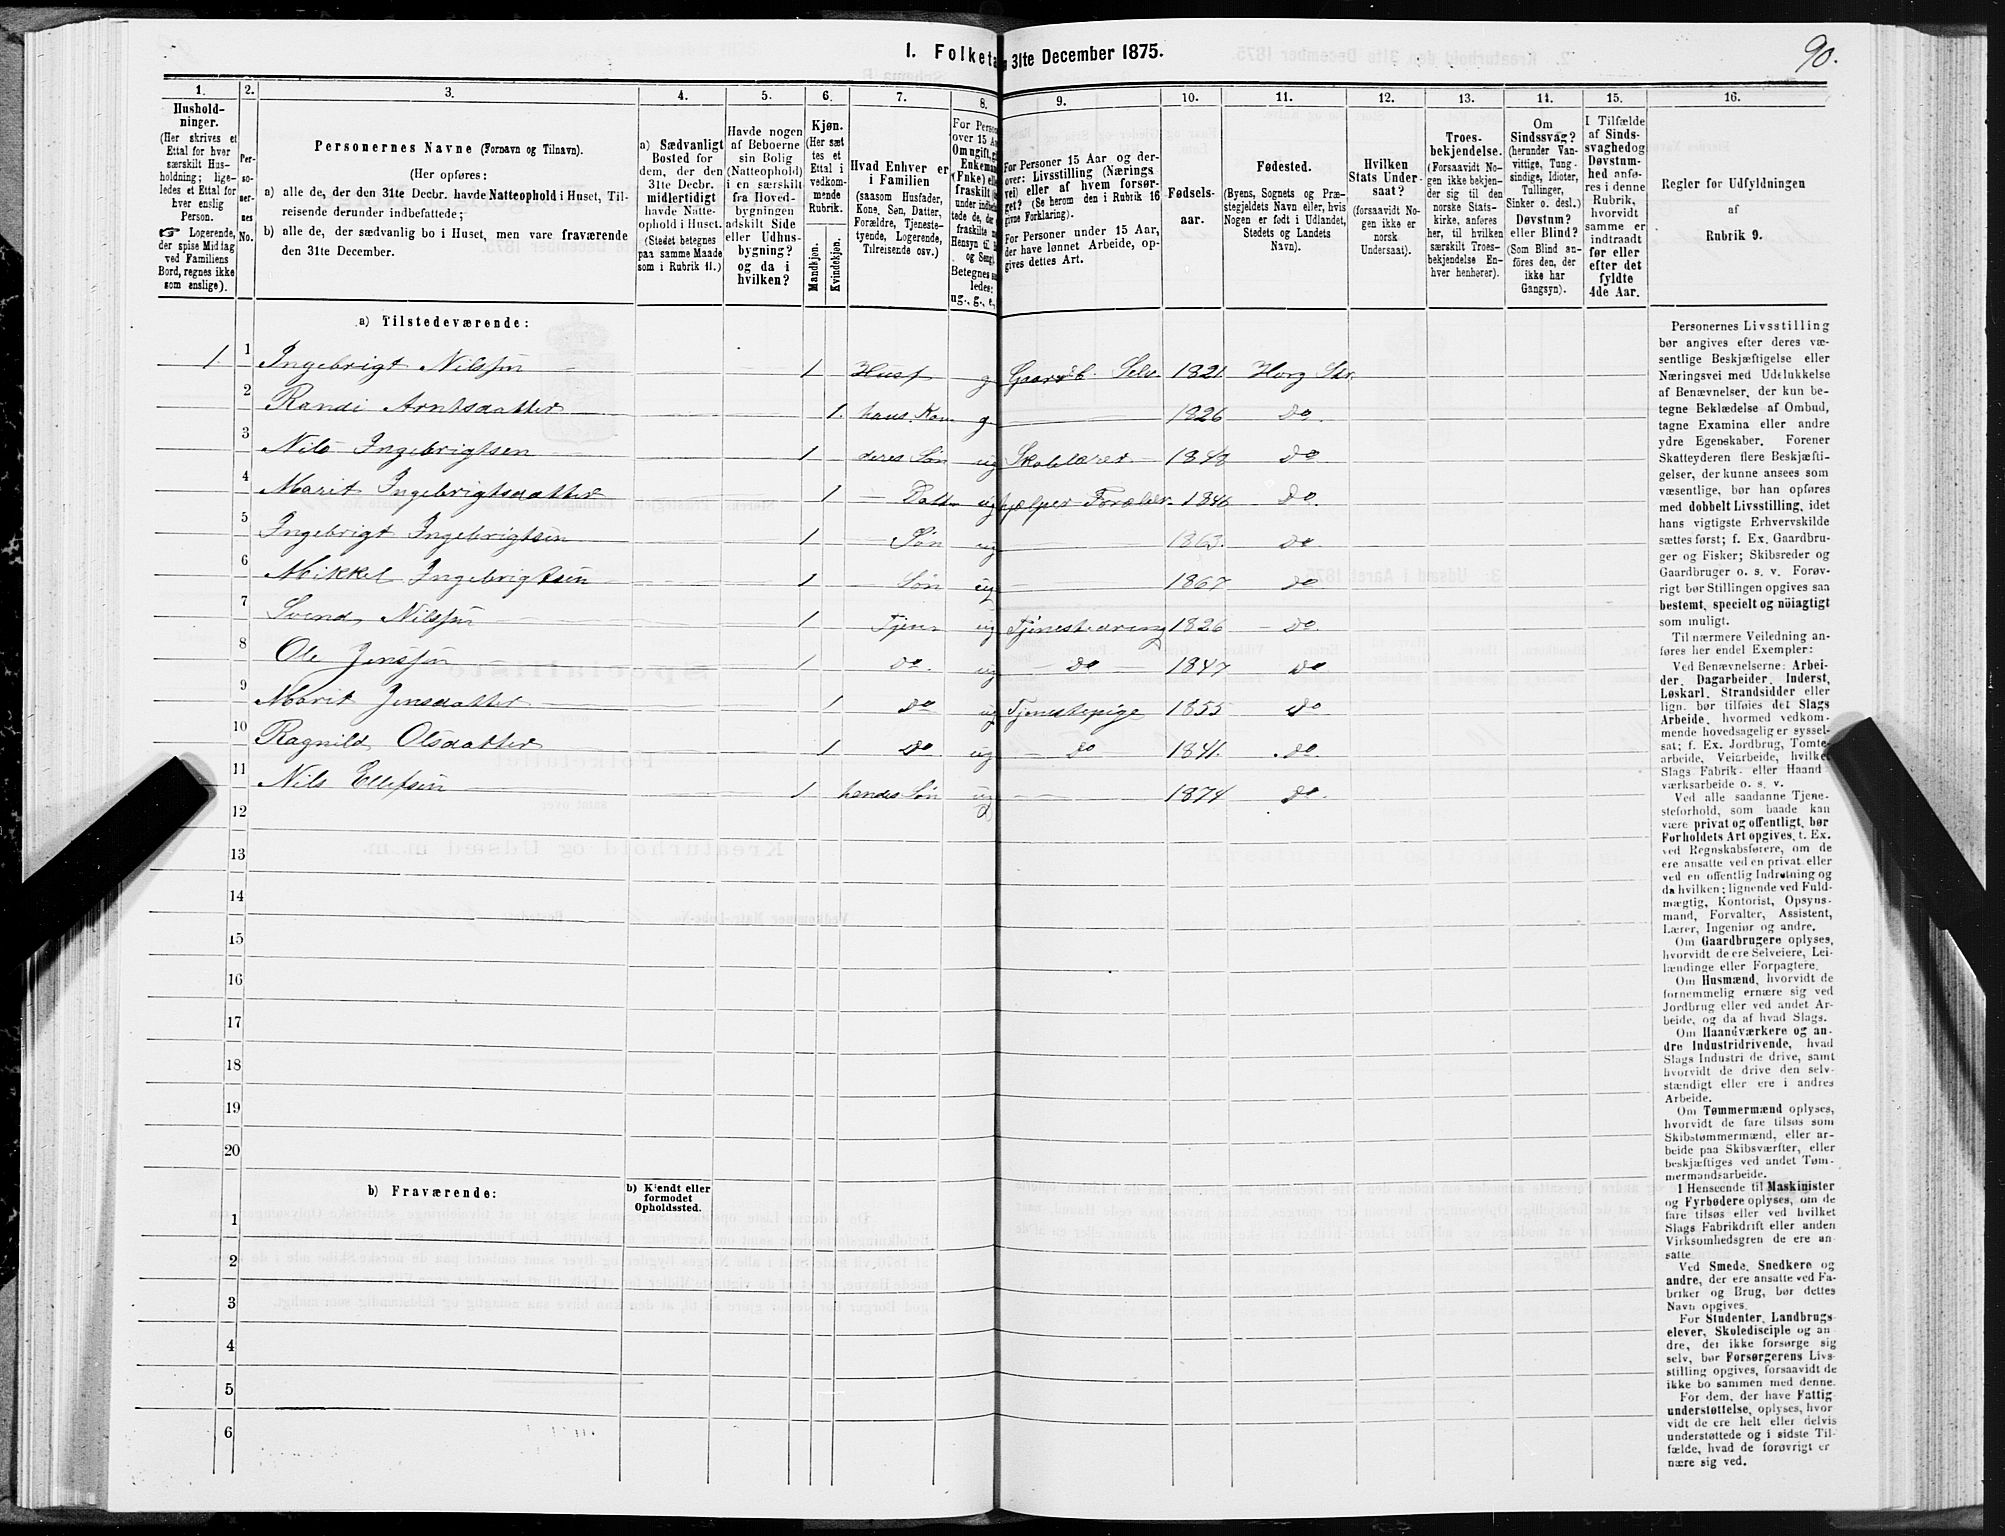 90.
1. Folketa 31te December 1875.
1. 2. 3. 4. 5. 6. 7. 8. 9. 10. 11. 12. 13. 14. 15. 16.
Hushold-
ninger.
(Her skrives et
Ettal for hver
særskilt Hus-
holdning; lige-
ledes et Ettal for
hver enslig
Person.
☞ Logerende,
der spise Middag
ved Familiens
Bord, regnes ikke
som enslige).
Per-
so-
ner-
nes
No.
Personernes Navne (Fornavn og Tilnavn).
(Her opføres:
a) alle de, der den 31te Decbr. havde Natteophold i Huset, Til-
reisende derunder indbefattede;
b) alle de, der sædvanlig bo i Huset, men vare fraværende
den 31te December.
a) Sædvanligt
Bosted for
dem, der den
31te Decbr.
midlertidigt
havde Natte-
ophold i Huset.
(Stedet betegnes
paa samme Maade
som i Rubrik 11.)
Havde nogen
af Beboerne
sin Bolig
(Natteophold)
i en særskilt
fra Hoved-
bygningen
adskilt Side
eller Udhus-
bygning?
og da i
hvilken?
Kjøn.
(Her sæt
tes et
Ettal i
vedkom-
mende
Rubrik.
Mandkjøn.
Kvindekjøn.
Hvad Enhver er
i Familien
(saasom Husfader,
Kone, Søn, Datter,
Forældre, Tjeneste-
tyende, Logerende,
Tilreisende osv.)
For Person
over 15 Aa
Om ugift, g
Enkeman
(Enke) elle
fraskilt
under indbe
tede de, de
fraskilte m
Hensyn til B
og Seng.
Betegnes sa
ledes:
ug., g., e.,
For Personer 15 Aar og der-
over: Livsstilling (Nærings
vei) eller af hvem forsør-
get (Se herom den i Rubrik 16
givne Forklaring).
For Personer under 15 Aar,
der have lønnet Arbeide, op-
gives dettes Art.
Fødsels-
aar.
Fødested.
(Byens, Sognets og Præ-
stegjeldets Navn eller, hvis
Nogen er født i Udlandet,
Stedets og Landets
Navn).
Hvilken
Stats Under-
saat?
(forsaavidt No-
gen ikke er
norsk
Undersaat).
Troes-
bekjendelse.
(Forsaavidt No-
gen ikke bekjen-
der sig til den
norske Stats-
kirke, anføres
her, til hvilken
særskilt Troes-
bekjendelse En-
hver henhører).
Om
Sindssvag?
(herunder Van-
vittige, Tung-
sindige, Idioter,
Tullinger,
Sinker o. desl.)
Døvstum?
eller Blind?
(Som Blind an-
føres den, der
ikke har
Gangsyn).
I Tilfælde
af Sinds-
svaghed og
Døvstum-
hed anfø-
res i denne
Rubrik,
hvorvidt
samme er
indtraadt
før eller
efter det
fyldte
4de Aar.
Regler for Udfyldningen
af
Rubrik 9.
a) Tilstedeværende:
1. 1 Ingebrigt Nilssøn 1 Husf g Gaardb. Selv. 1821 Horg Skr.
2 Randi Arntsdatter 1. hans Kon g 1826 do
3 Nils Ingebrigtsen 1 deres Søn ug Skolelærer 1848 do
4 Marit Ingebrigtsdatter 1 Datt ug hjelper Foræld. 1846 do
5 Ingebrigt Ingebrigtsen 1 Søn ug 1863. do
6 Mikkel Ingebrigtsen 1 Søn ug 1867 do
7 Svend Nilssøn 1 Tjen ug Tjenestdreng 1826 do
8 Ole Jenssøn 1 do. ug do 1847 do
9 Marit Jensdatter 1 do ug Tjenestepige 1855 do
10 Ragnild Olsdatter 1 do ug do 1841. do
11 Nils Ellefsen 1 hendes Søn ug 1874 do
12
13
14
15
16
17
18
19
20
b) Fraværende:
b) Kjendt eller
formodet
Opholdssted.
1
2
3
4
5
6
Personernes Livsstilling
bør angives efter deres væ-
sentlige Beskjæftigelse eller
Næringsvei med Udelukkelse
af Benævnelser, der kun be-
tegne Beklædelse af Ombud,
tagne Examina eller andre
ydre Egenskaber. Forener
Skatteyderen flere Beskjæfti-
gelser, der kunne ansees som
væsentlige, bør han opføres
med dobbelt Livsstilling, idet
hans vigtigste Erhvervskilde
sættes først; f. Ex. Gaardbru-
ger og Fisker; Skibsreder og
Gaardbruger o. s. v. Forøv-
rigt bør Stillingen opgives saa
bestemt, specielt og nöiagtigt
som muligt.
Til nærmere Veiledning an-
føres her endel Exempler:
Ved Benævnelserne: Arbei-
der, Dagarbeider, Inderst,
Løskarl, Strandsidder eller
lign. bør tilføies det Slags
Arbeide, hvormed vedkom-
mende hovedsagelig er syssel-
sat; f. Ex. Jordbrug, Tomte-
arbeide, Veiarbeide, hvilket
Slags Fabrik- eller Haand-
værksarbeide o. s. v.
Ved alle saadanne Tjene-
steforhold, som baade kan
være privat og offentligt, bør
Forholdets Art opgives, t. Ex.
ved Regnskabsførere, om de
ere ansatte ved en privat eller
ved en offentlig Indretning og
da hvilken; lignende ved Fuld-
mægtig, Kontorist, Opsyns-
mand, Forvalter, Assistent,
Lærer, Ingeniør og andre.
Om Gaardbrugere oplyses,
hvorvidt de ere Selveiere, Lei-
lændinge eller Forpagtere.
Om Husmænd, hvorvidt de
fornemmelig ernære sig ved
Jordbrug eller ved andet Ar-
beide, og da af hvad Slags.
Om Haandværkere og an-
dre Industridrivende, hvad
Slags Industri de drive, samt
hvorvidt de drive den selv-
stændigt eller ere i andres
Arbeide.
Om Tømmermænd oplyses,
hvorvidt de fare tilsøs som
Skibstømmermænd, eller ar-
beide paa Skibsværfter, eller
beskjæftiges ved andet Tøm-
mermandsarbeide.
I Henseende til Maskinister
og Fyrbødere oplyses, om de
fare tilsøs eller ved hvilket
Slags Fabrikdrift eller anden
Virksomhedsgren de ere an-
satte.
Ved Smede, Snedkere og
andre, der ere ansatte ved Fa-
briker og Brug, bør dettes
Navn opgives.
For Studenter, Landbrugs-
elever, Skoledisciple og an-
dre, der ikke forsørge sig
selv, bør Forsørgerens Livs-
stilling opgives, forsaavidt de
ikke bo sammen med denne.
For dem, der have Fattig-
understøttelse, oplyses, hvor-
vidt de ere helt eller delvis
understøttede og i sidste Til-
fælde, hvad de forøvrigt er
nære sig ved.